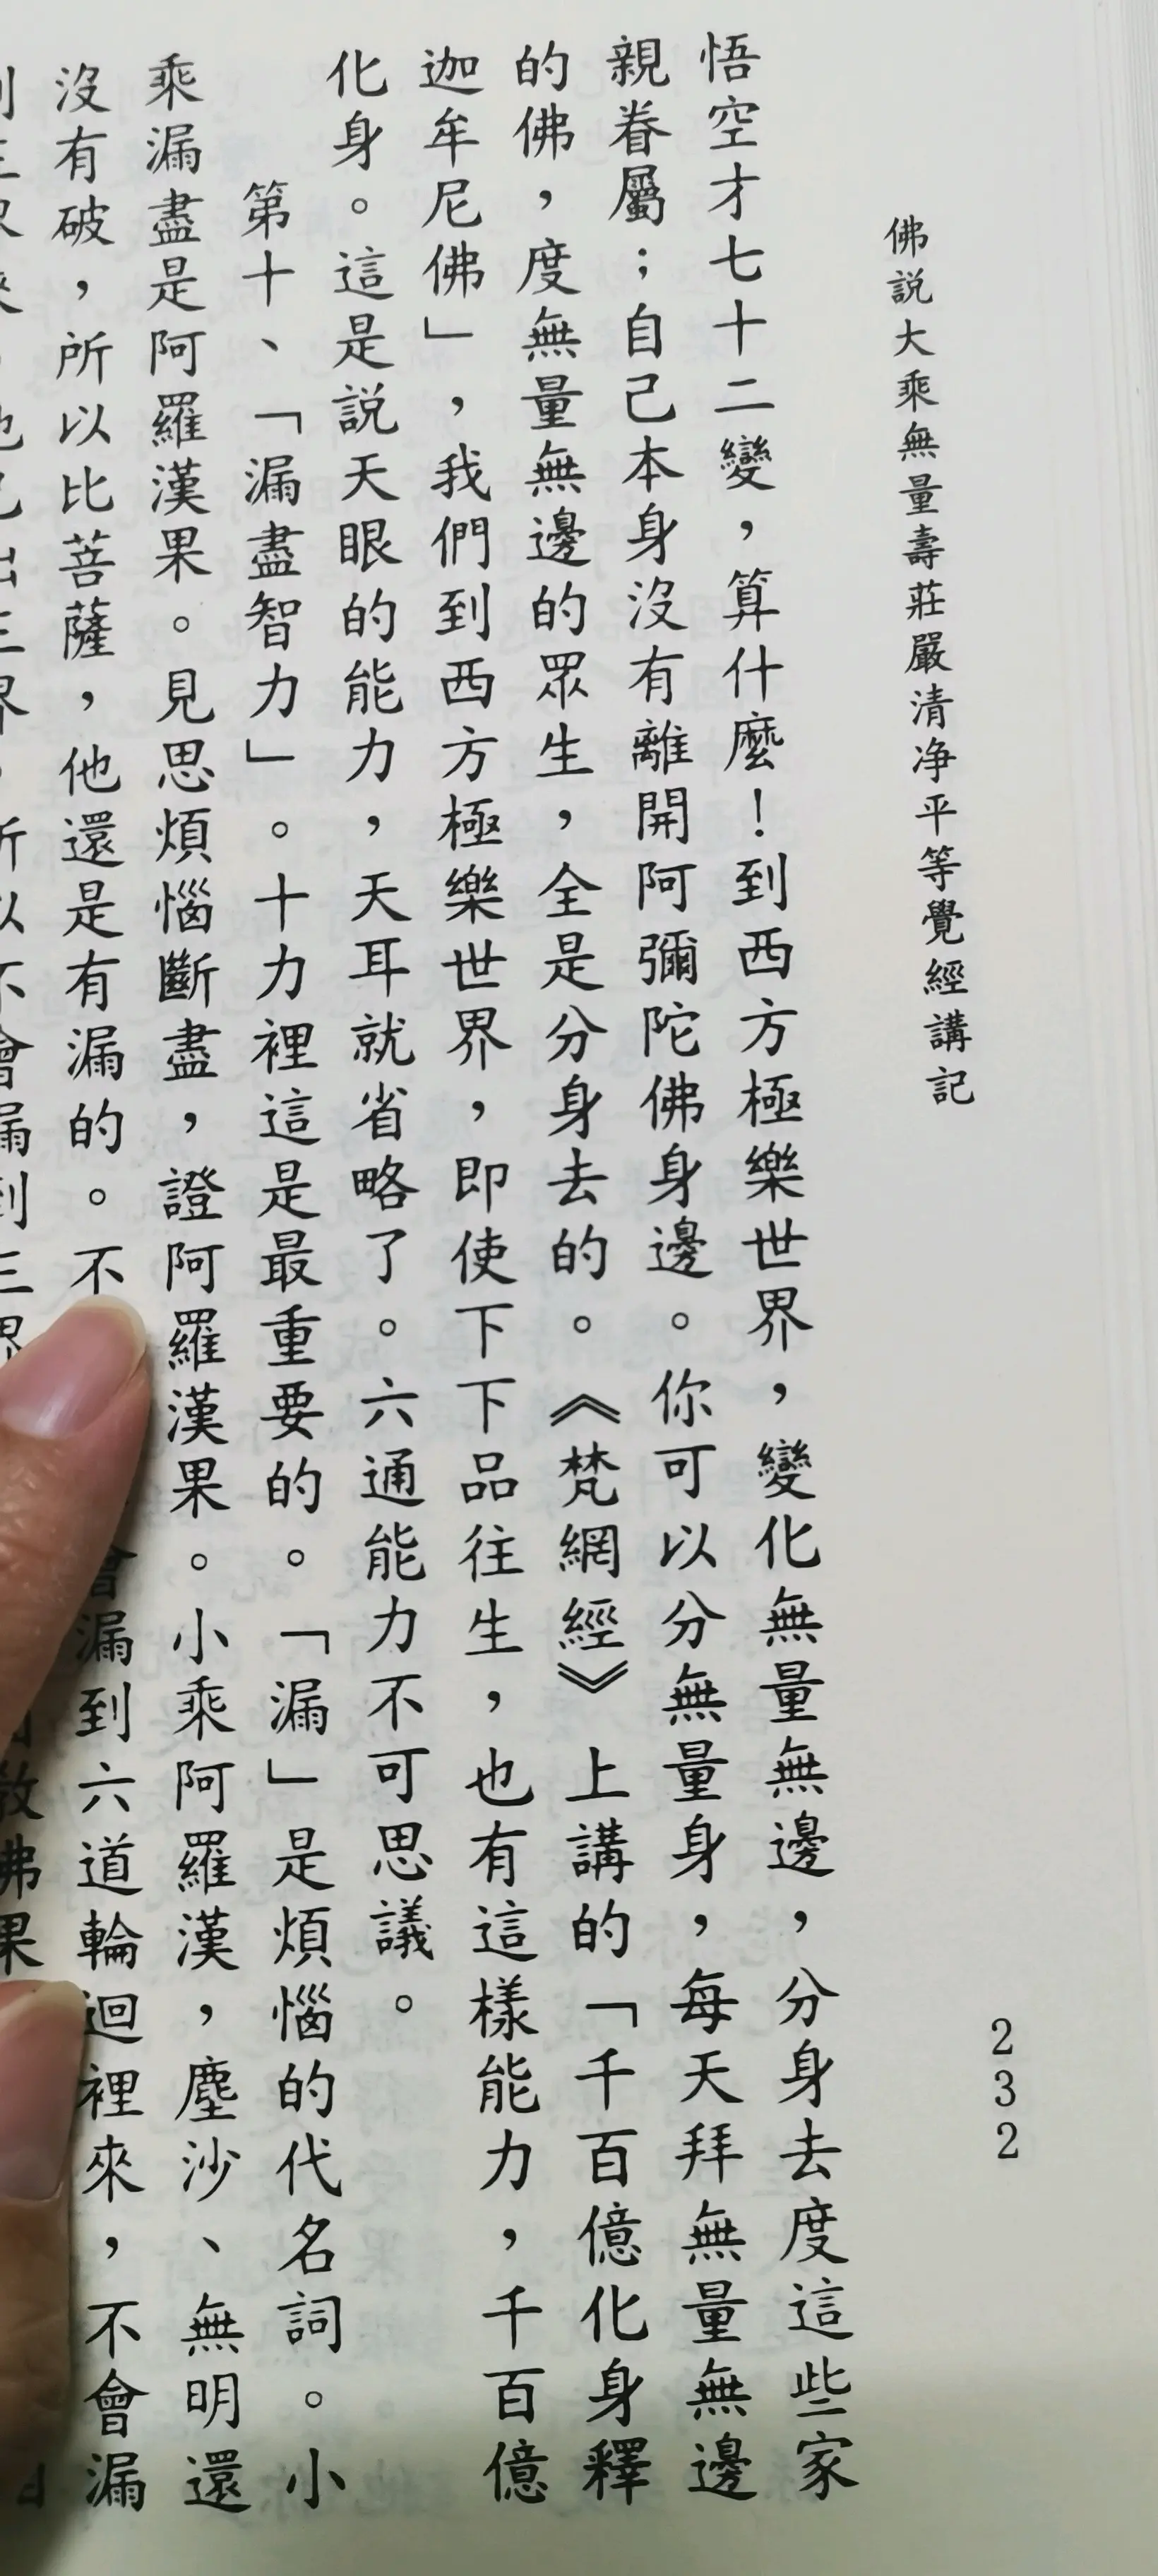 佛説大乘無量壽莊嚴清净平等覺經講記
232
悟空才七十二變，算什麼！到西方極樂世界，變化無量無邊，分身去度這些家
親眷屬；自己本身沒有離開阿彌陀佛身邊。你可以分無量身，每天拜無量無邊
的佛，度無量無邊的眾生，全是分身去的。《梵網經》上講的「千百億化身釋
迦牟尼佛」，我們到西方極樂世界，即使下下品往生，也有這樣能力，千百億
化身。這是説天眼的能力，天耳就省略了。六通能力不可思議。
第十、「漏盡智力」。十力裡這是最重要的。「漏」是煩惱的代名詞。小
乘漏盡是阿羅漢果。見思煩惱斷盡，證阿羅漢果。小乘阿羅漢，塵沙、無明還
沒有破，所以比菩薩，他還是有漏的。不會漏到六道輪迴裡來，不會漏
界，所以不會漏到三界
教佛果